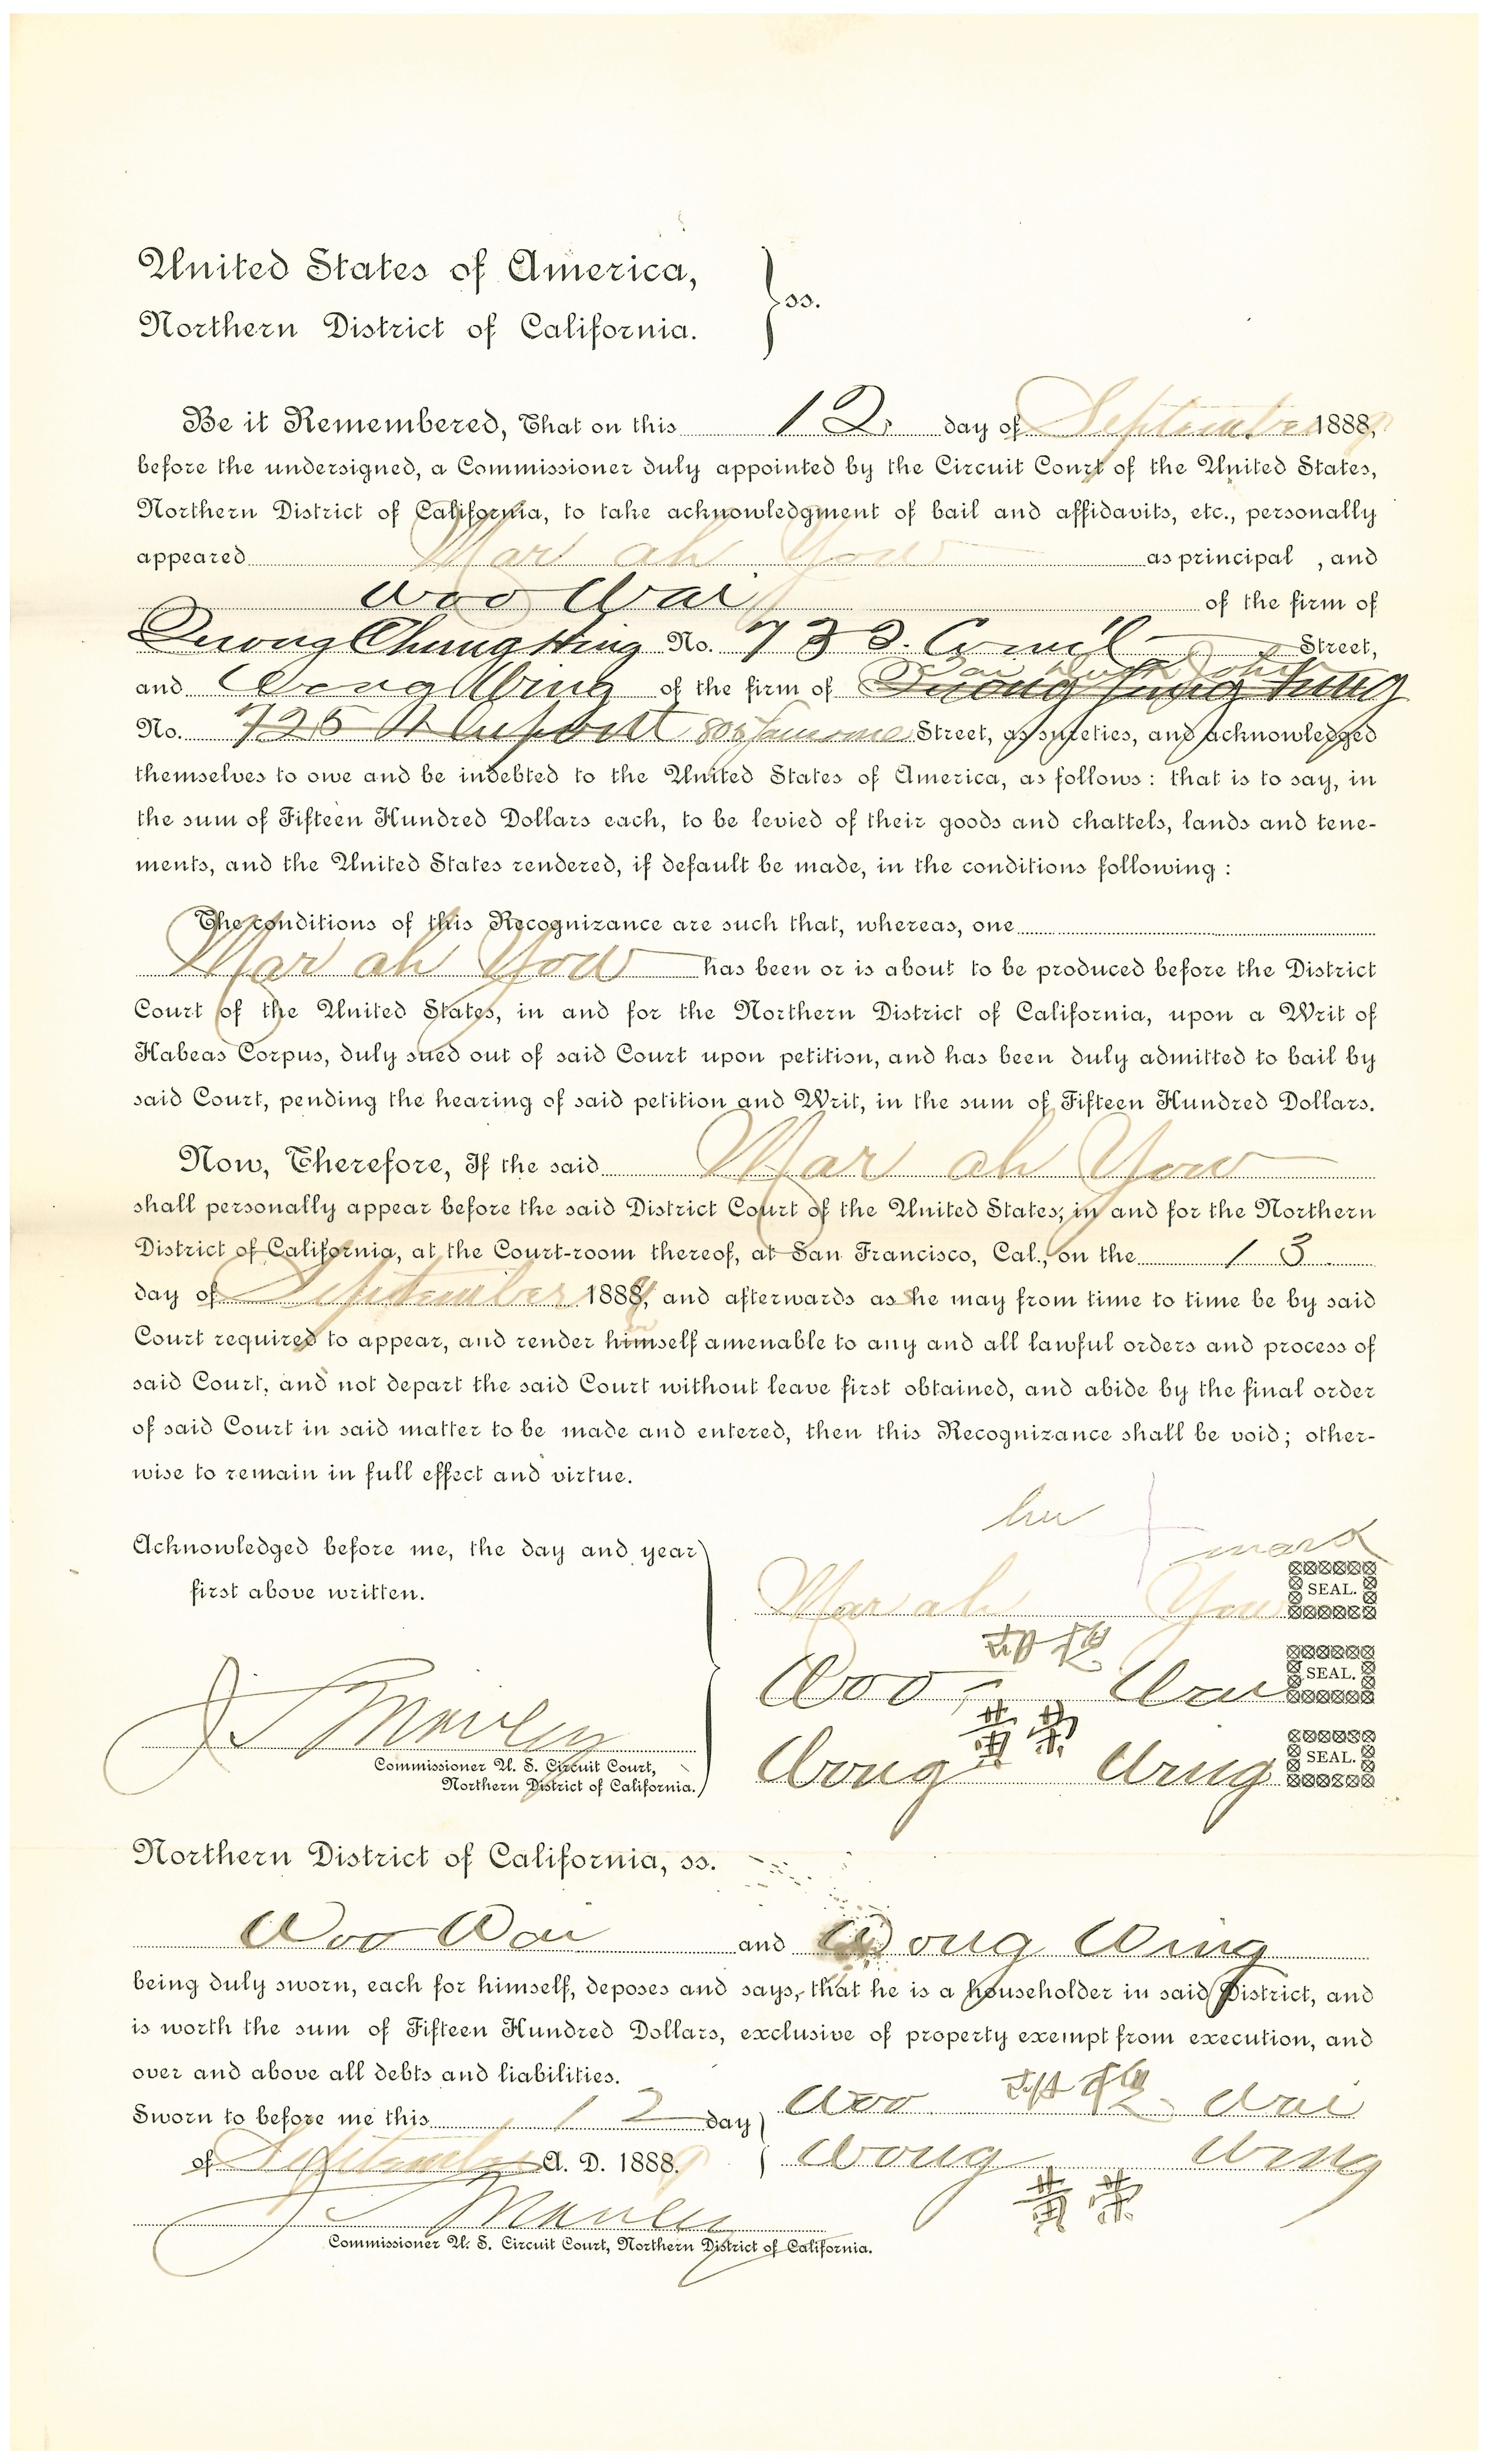 United States of America,
Northern District of California. } ss.
Be it Remembered, That on this 12 day of September 1889,
before the undersigned, a Commissioner duly appointed by the Circuit Court of the United States,
Northern District of California, to take acknowledgment of bail and affidavits, etc., personally
appeared Mar ah Yow as principal , and
Woo Wai of the firm of
Quong Chung Hing No. 733. Coml Street,
and Wong Wing of the firm of
No. 725 Dupont 805 Sansome Street, as sureties, and acknowledged
themselves to owe and be indebted to the United States of America, as follows: that is to say, in
the sum of Fifteen Hundred Dollars each, to be levied of their goods and chattels, lands and tene-
ments, and the United States rendered, if default be made, in the conditions following:
The conditions of this Recognizance are such that, whereas, one
Mar ah Yow has been or is about to be produced before the District
Court of the United States, in and for the Northern District of California, upon a Writ of
Habeas Corpus, duly sued out of said Court upon petition, and has been duly admitted to bail by
said Court, pending the hearing of said petition and Writ, in the sum of Fifteen Hundred Dollars.
Now, Therefore, If the said Mar ah Yow
shall personally appear before the said District Court of the United States, in and for the Northern
District of California, at the Court-room thereof, at San Francisco, Cal., on the 13
day of September 1889, and afterwards as she may from time to time be by said
Court required to appear, and render herself amenable to any and all lawful orders and process of
said Court, and not depart the said Court without leave first obtained, and abide by the final order
of said Court in said matter to be made and entered, then this Recognizance shall be void; other-
wise to remain in full effect and virtue.
her + mark
Acknowledged before me, the day and year
first above written.
Mar ah Yow SEAL.
Woo Wai SEAL.
Wong 黃榮 Wing SEAL.
Commissioner U. S. Circuit Court,
Northern District of California.
Northern District of California, ss.
Woo Wai and Wong Wing
being duly sworn, each for himself, deposes and says, that he is a householder in said District, and
is worth the sum of Fifteen Hundred Dollars, exclusive of property exempt from execution, and
over and above all debts and liabilities.
Sworn to before me this 12 day
of September A. D. 1889.
Woo Wai
Wong Wing
黃榮
Commissioner U. S. Circuit Court, Northern District of California.